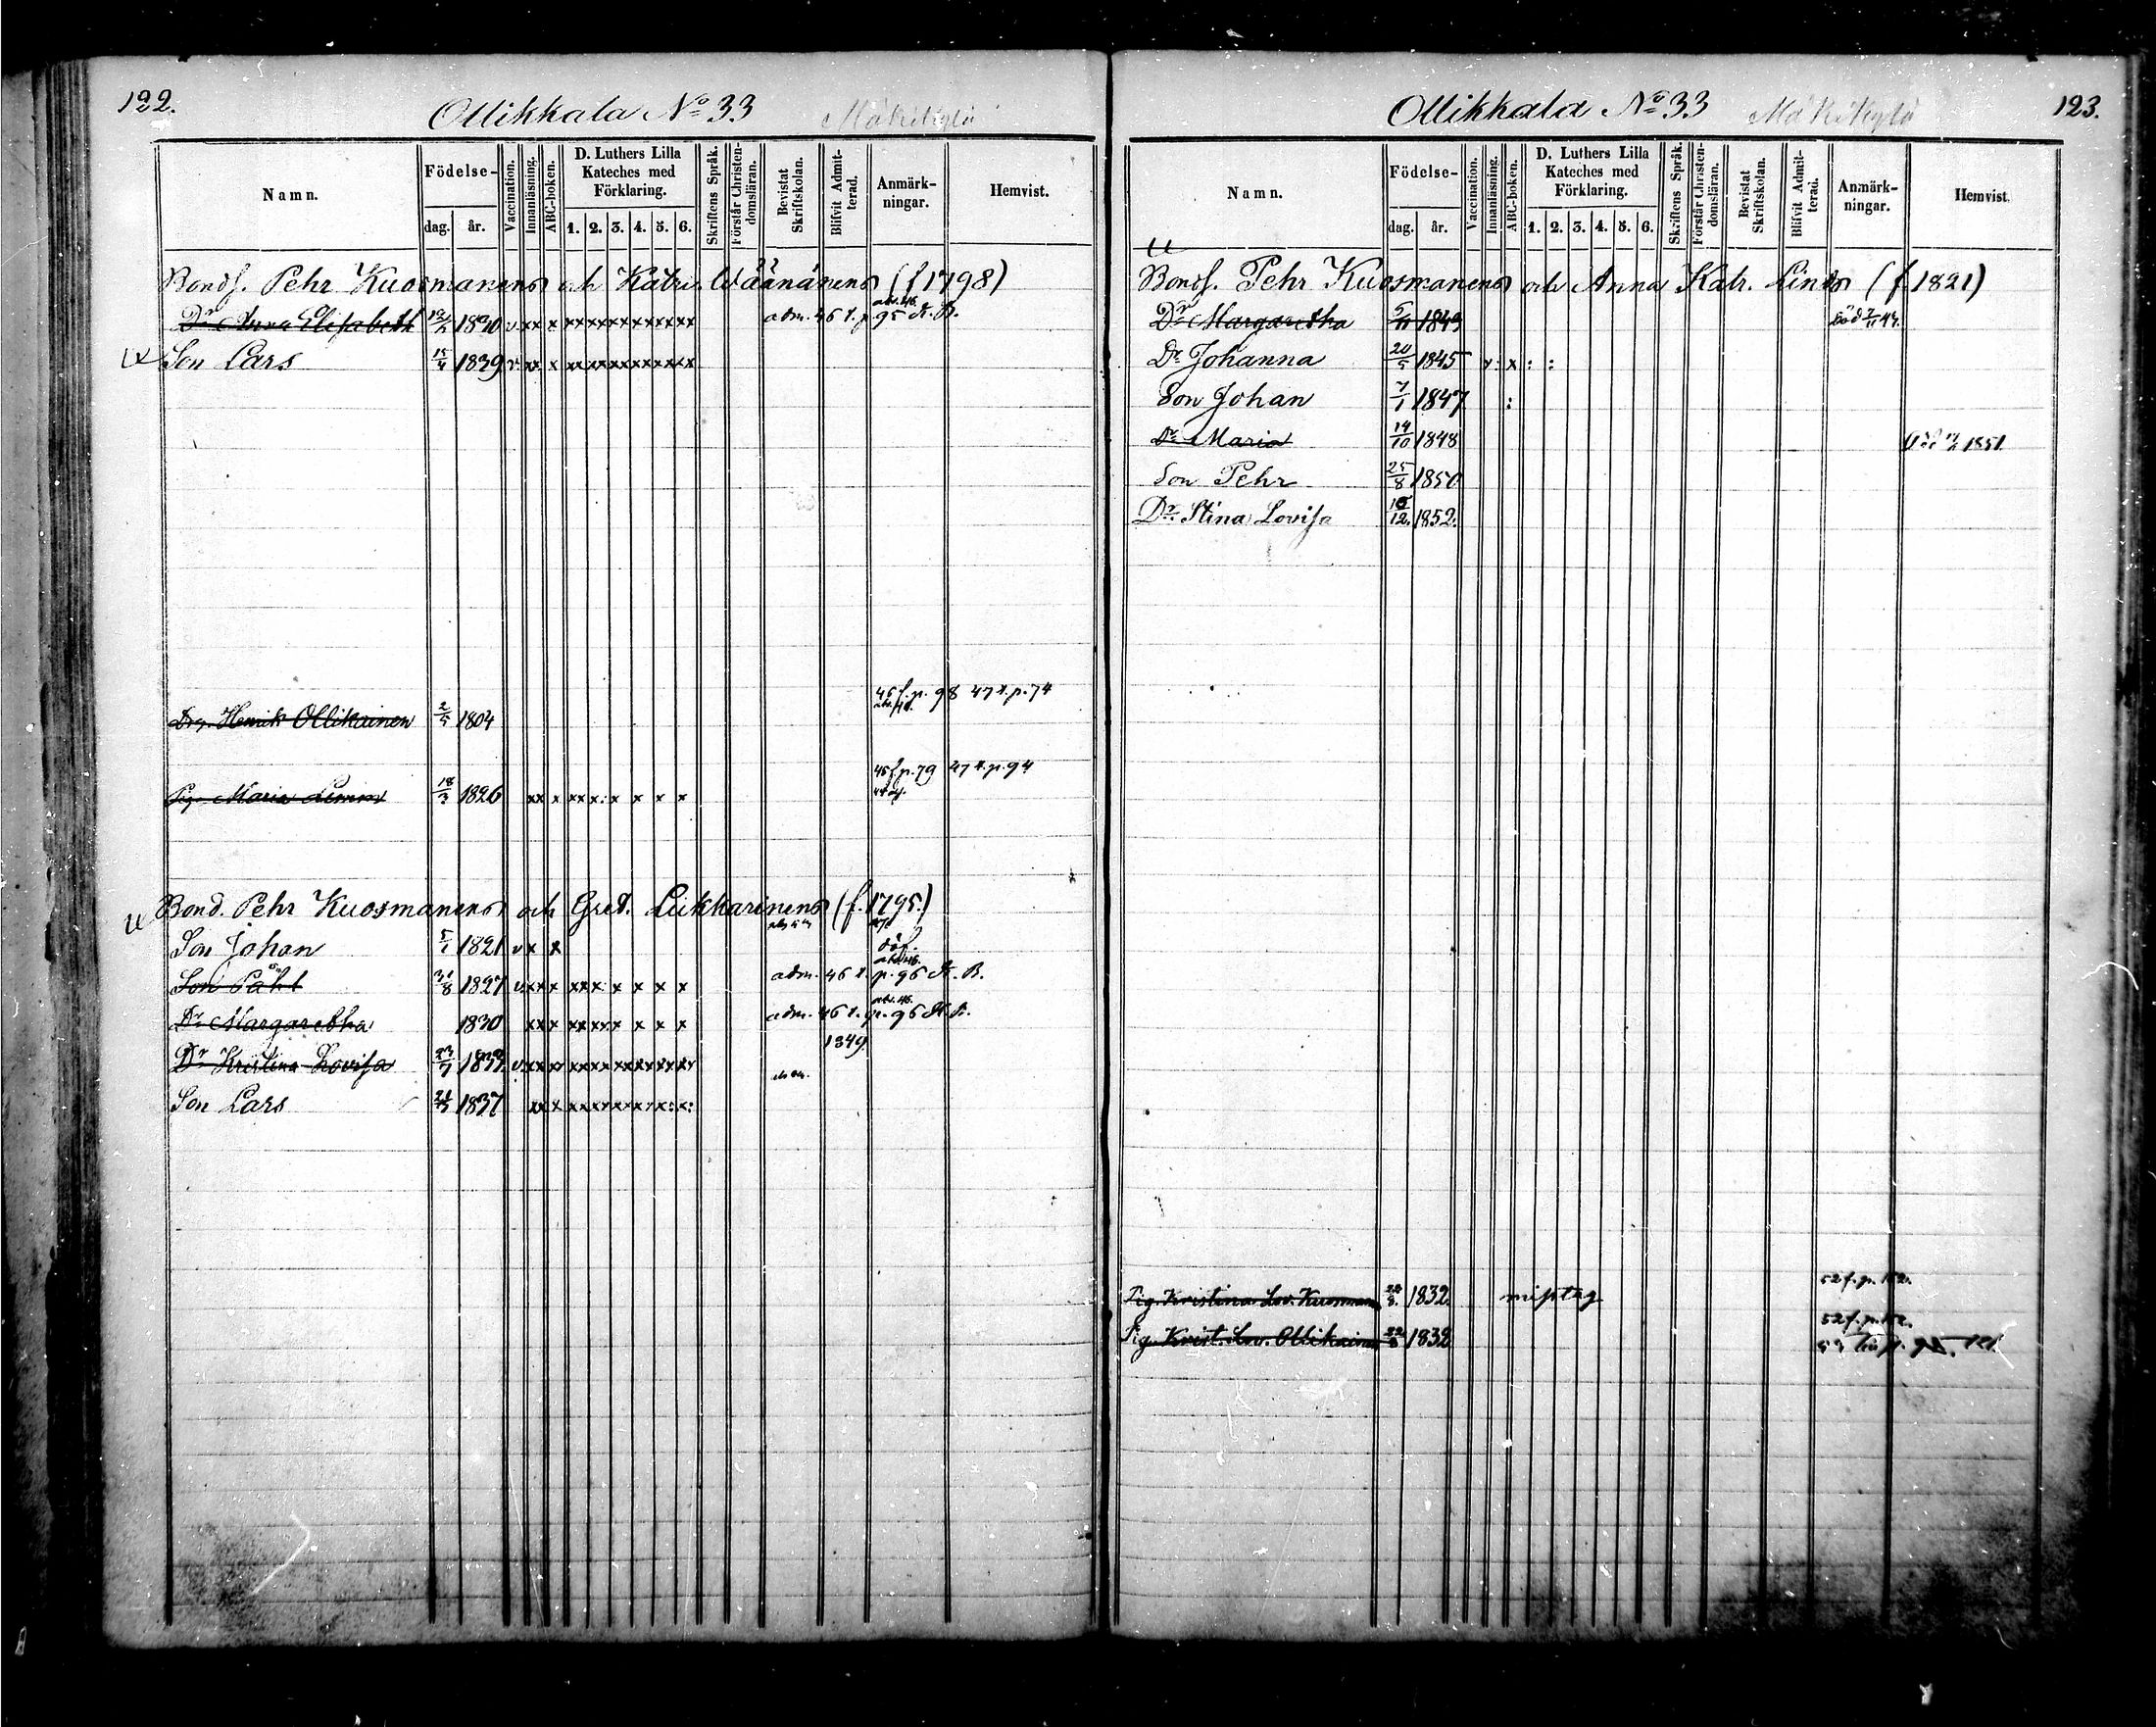 122.
Ollikkala No 33 Mäkikylä
Namn.
Födelse-
dag. år.
Vaccination.
Innanläsning.
ABC-boken.
D. Luthers Lilla
Kateches med
Förklaring.
1. 2. 3. 4. 5. 6.
Skriftens Språk.
Förstår Christen-
domsläran.
Bevistat
Skriftskolan.
Blifvit Admit-
terad.
Anmärk-
ningar.
Hemvist.
Bondf. Pehr Kuosmanens och Katri. Wäänänens (f 1798)
Dr Anna Elisabeth 1830 v xx x xxxxxxxxxxxx adm. 46 t. p 95 K. B.
Son Lars 15/4 1839 v xx x xxxxxxxxxxxx
45 f. p. 98 47 t. p. 74
Drg. Henrik Ollikainen 2/5 1804
45 f. p. 79 47 t. p. 94
Pig. Maria Limm 18/3 1826 xx x xx x: x x x x
Bond. Pehr Kuosmanens och Gret. Liikkarinens (f. 1795.)
Son Johan 5/1 1821 v x x döf.
Son Påhl 31/8 1827 v xxx xxx: x x x x adm. 46 t. p. 96 K. B.
Dr Margaretha 1830 xxx xxxxx x x x adm. 46 t. p. 96 K. B.
1849
Dr Kristina Lovisa 23/7 1833 v xxx xxxxxxxxxxxx
Son Lars 1837 xx x xxxxxxxxx:x:
123.
Ollikkala No 33 Mäkikylä
Namn.
Födelse-
dag. år.
Vaccination.
Innanläsning.
ABC-boken.
D. Luthers Lilla
Kateches med
Förklaring.
1. 2. 3. 4. 5. 6.
Skriftens Språk.
Förstår Christen-
domsläran.
Bevistat
Skriftskolan.
Blifvit Admit-
terad.
Anmärk-
ningar.
Hemvist.
Bondf. Pehr Kuosmanens och Anna Katr. Linds (f 1821)
Dr Margaretha 5/11 1843 död 7/11 44.
Dr Johanna 20/5 1845 v: x : :
Son Johan 7/1 1847 :
Dr Maria 14/10 1848 1851.
Son Pehr 25/8 1850
Dr Stina Lovisa 12. 1852.
52 f. p. 152.
Pig. Kristina Lov. Kuosmanen 1832. misstag
52 f. p. 152.
Pig. Krist. Lov. Ollikainen 1832